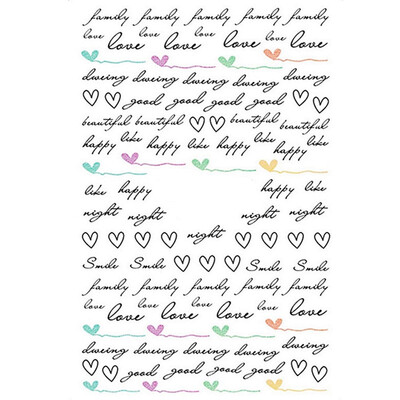 family family family family family
love love love love
love love love love love
dweing dweing dweing dweing dweing
good good good good
beautiful beautiful beautiful beautiful
happy like happy like happy like happy like happy
like happy happy like
night night night night
night
Smile Smile Smile Smile
family family family family family
love love love love
love love love love love
dweing dweing dweing dweing dweing
good good good good